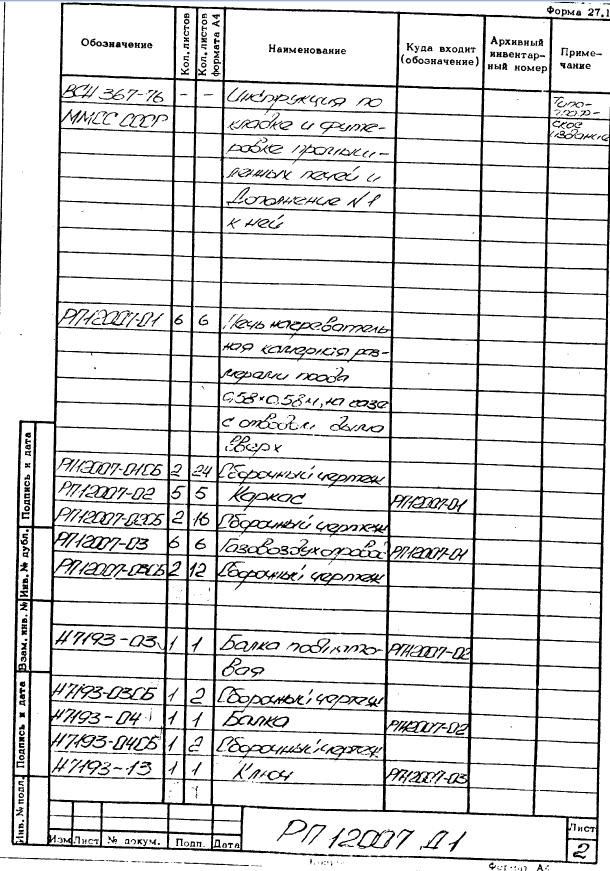 Форма 27.1
Обозначение Кол. листов Кол. листов формата А4 Наименование Куда входит (обозначение) Архивный инвентар- ный номер Приме- чание
ВСН 367-76 - - Инструкция по Типо-
ММСС СССР кладке и футе- граф-
ское
ровке промыш- издание
ленных печей и
Дополнение №1
к ней
РП12007-01 6 6 Печь нагреватель
ная камерная раз
мерами пода
0,58×0,58м, на газе
с отводом дыма
вверх
РП12007-01СБ 2 24 Сборочный чертеж
РП12007-02 5 5 Каркас РП12007-01
РП12007-02СБ 2 16 Сборочный чертеж
РП12007-03 6 6 Газовоздухопровод РП12007-01
РП12007-03СБ 2 12 Сборочный чертеж
Н7193-03 1 1 Балка подпято- РП12007-02
вая
Н7193-03СБ 1 2 Сборочный чертеж
Н7193-04 1 1 Балка РП12007-02
Н7193-04СБ 1 2 Сборочный чертеж
Н7193-13 1 1 Ключ РП12007-03
Инв. № подл. Подпись и дата Взам. инв. № Инв. № дубл. Подпись и дата
Изм Лист № докум. Подп. Дата
РП12007 Д1
Лист
2
Формат А4